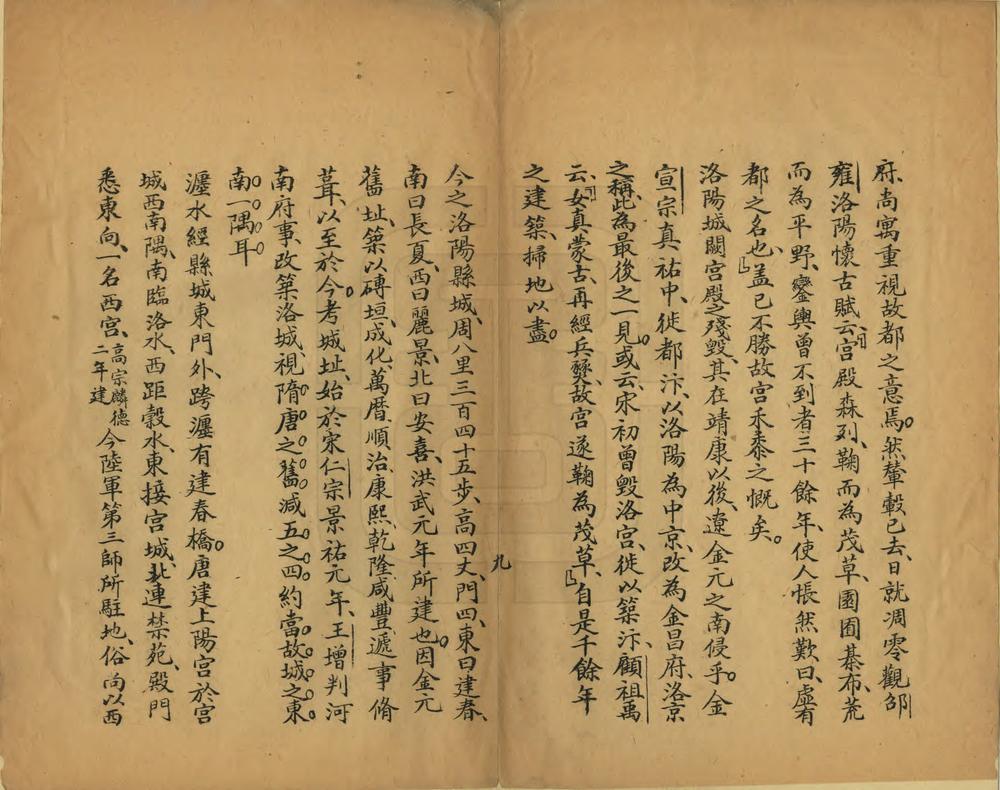 府、尚寓重視故都之意焉。然輦轂已去、日就凋零、觀邵
雍洛陽懷古賦云、「宮殿森列、鞠而為茂草、園囿棊布、荒
而為平野、鑾輿曾不到者三十餘年、使人悵然歎曰、虛有
都之名也」、蓋已不勝故宮禾黍之慨矣。
洛陽城闕宮殿之殘毀、其在靖康以後、遼金元之南侵乎。金
宣宗真祐中、徙都汴、以洛陽為中京、改為金昌府、洛京
之稱、此為最後之一見。或云宋初曾毀洛宮、徙以築汴、顧祖禹
云、「女真蒙古、再經兵燹、故宮遂鞠為茂草、」自是千餘年
之建築、掃地以盡。
九
今之洛陽縣城、周八里三百四十五步、高四丈、門四、東曰建春、
南曰長夏、西曰麗景、北曰安喜、洪武元年所建也。因金元
舊址、築以磚垣、成化、萬曆、順治、康熙、乾隆、咸豐、遞事脩
葺、以至於今。考城址、始於宋仁宗景祐元年、王增判河
南府事、改築洛城、視隋唐之舊、減五之四、約當故城之東
南一隅耳
瀍水經縣城東門外、跨瀍有建春橋。唐建上陽宮於宮
城西南隅、南臨洛水、西距穀水、東接宮城、北連禁苑、殿門
悉東向、一名西宮、高宗麟德二年建今陸軍第三師所駐地、俗尚以西